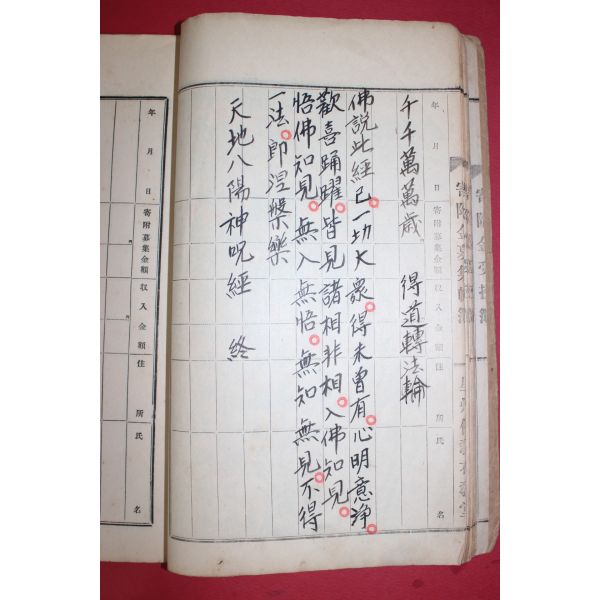 千千萬萬歲 得道轉法輪
佛說此經已一切大衆得未曾有心明意淨
歡喜踊躍皆見諸相非相入佛知見
悟佛知見無入無悟無知無見不得
一法卽涅槃樂
天地八陽神呪經 終
年 月 日 寄附募集金額 收入金額 住所 氏名
年 月 日
名